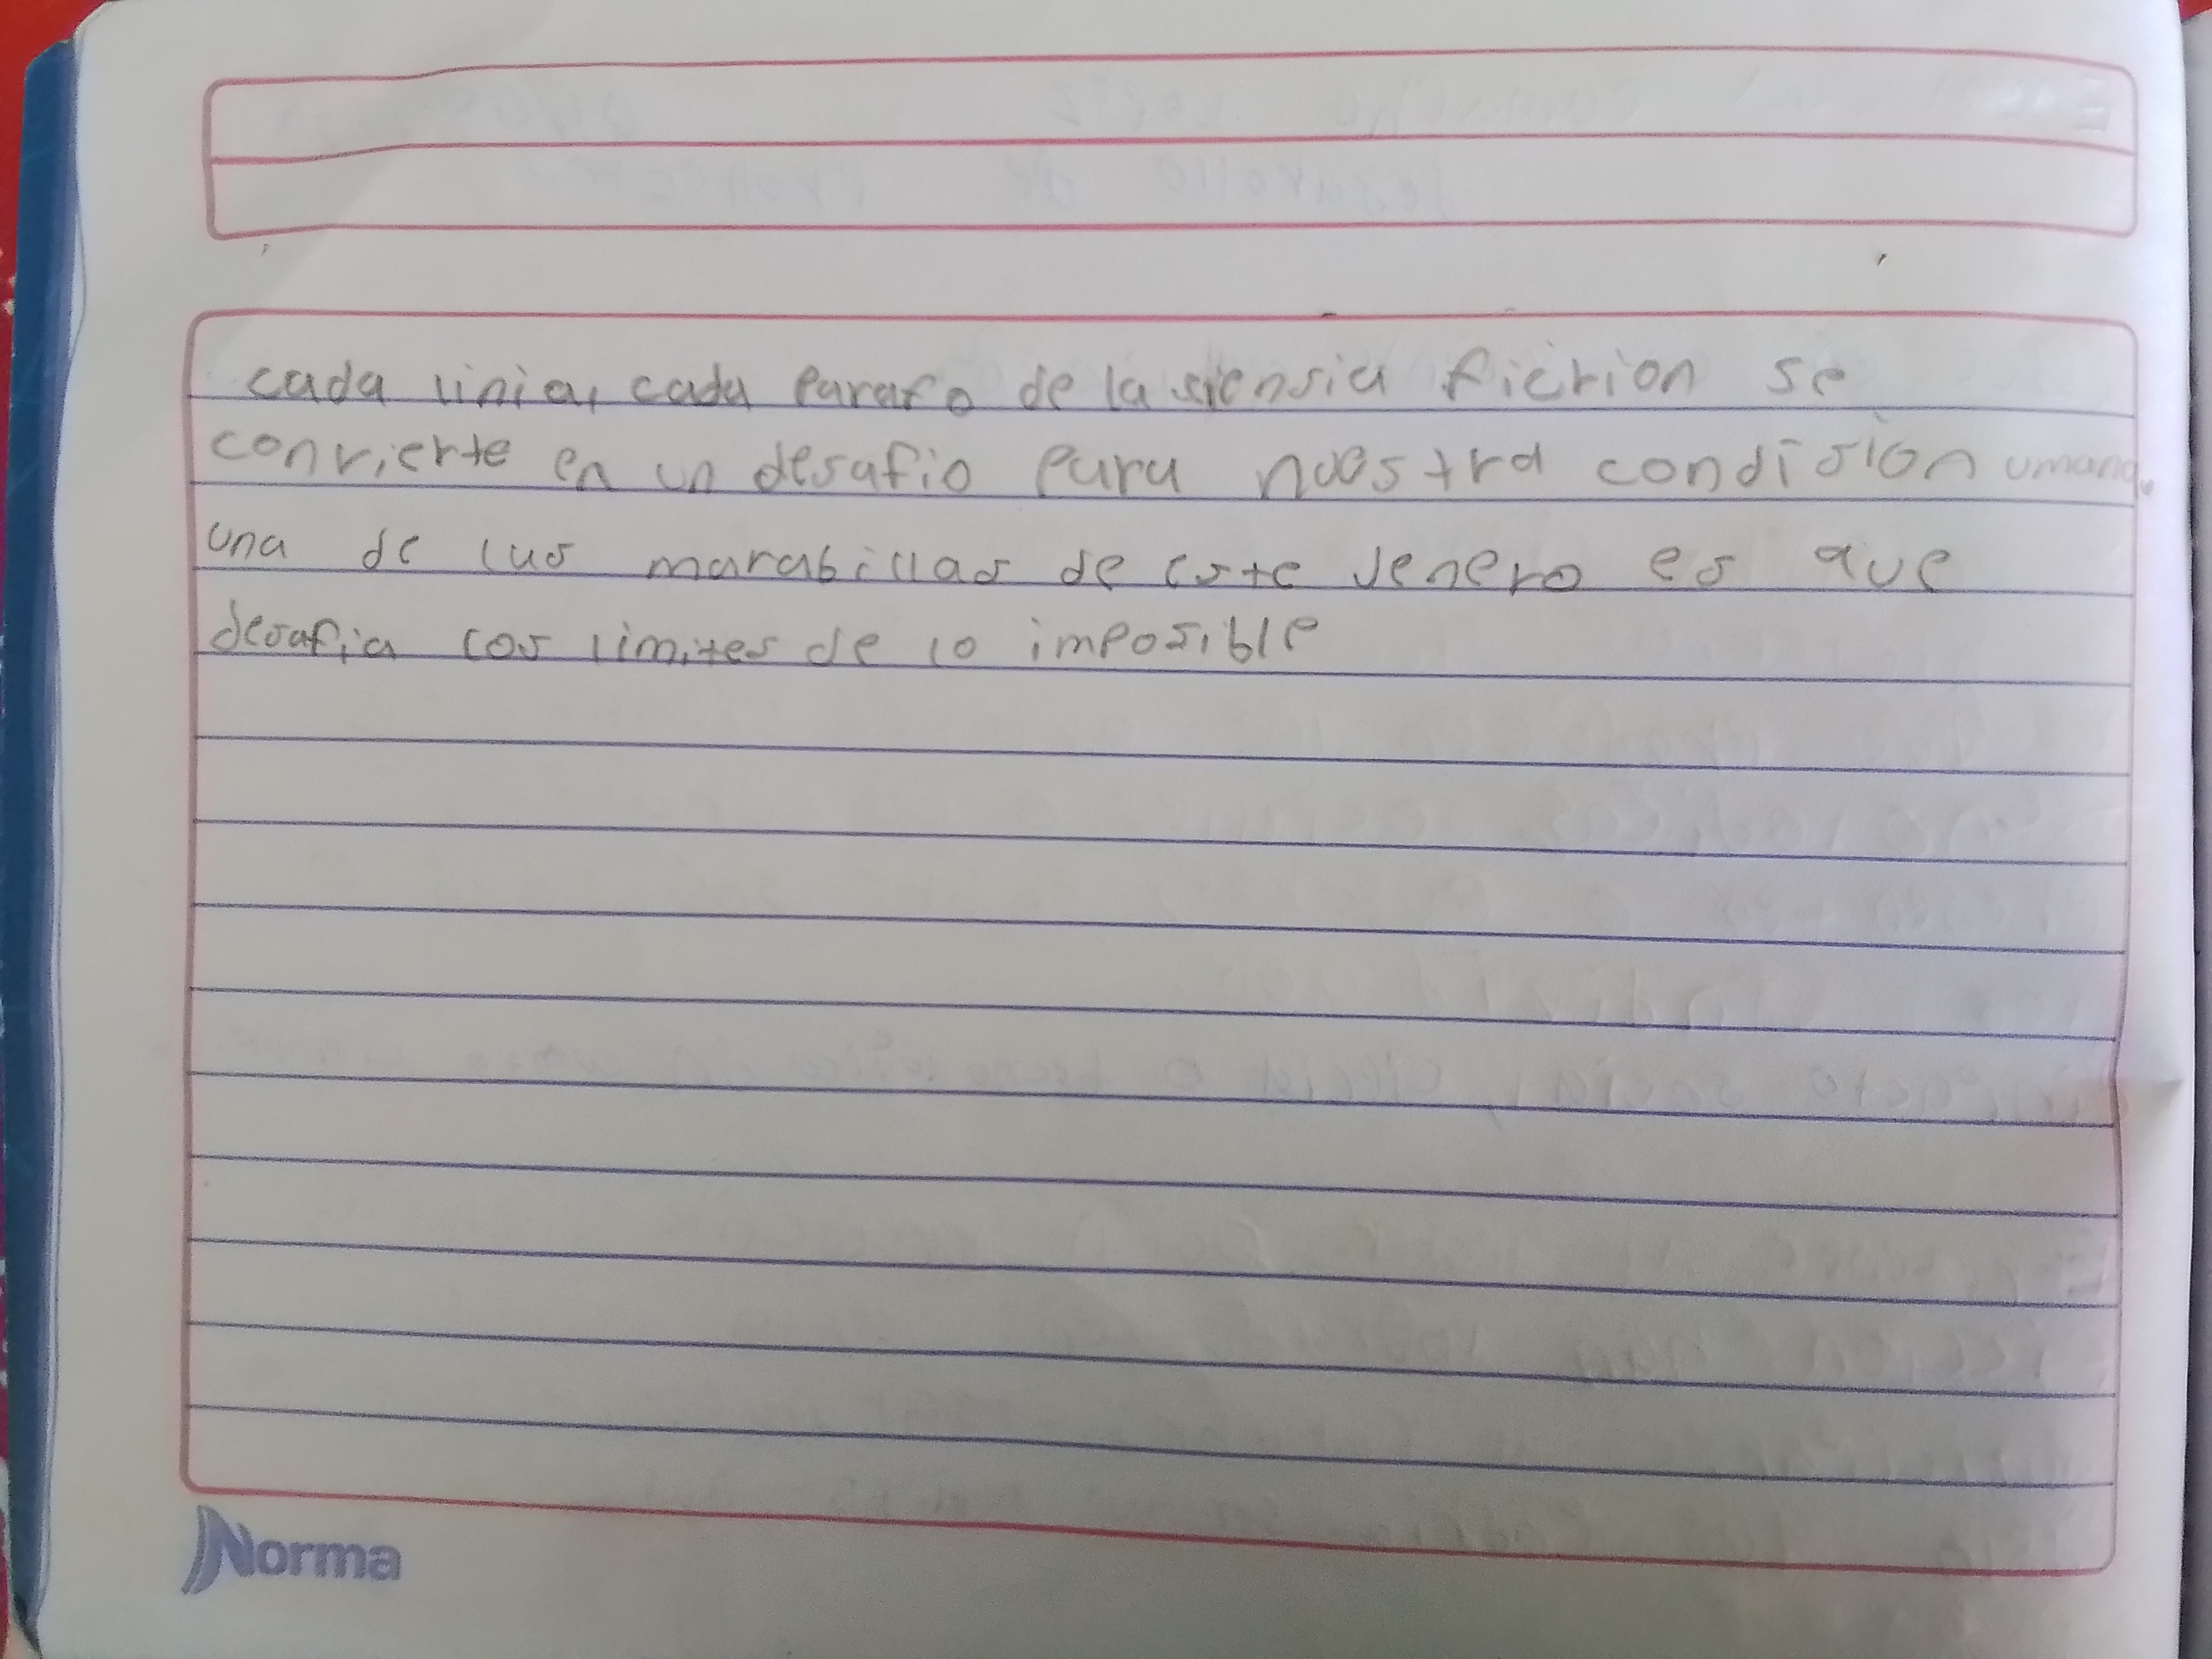 cada linia, cada parafo de la siensia fiction se
convierte en un desafio para nuestra condision umana.
una de las marabillas de este Jenero es que
desafia los limites de lo imposible
Norma